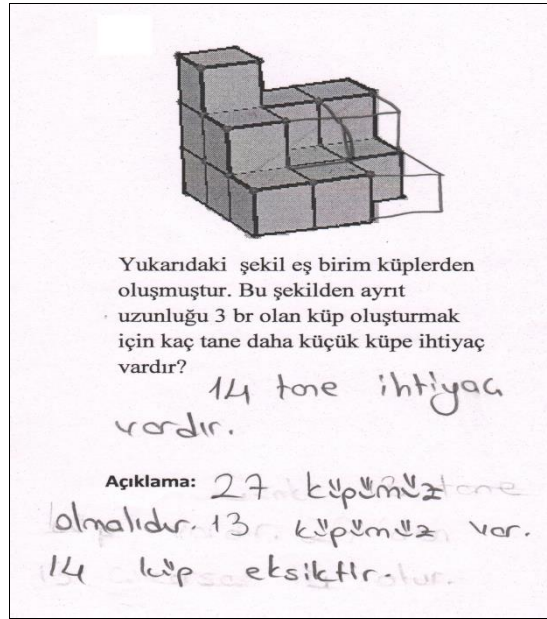 Yukarıdaki şekil eş birim küplerden
oluşmuştur. Bu şekilden ayrıt
uzunluğu 3 br olan küp oluşturmak
için kaç tane daha küçük küpe ihtiyaç
vardır?
14 tane ihtiyacı
vardır.
Açıklama: 27 küpümüz
olmalıdır. 13 küpümüz var.
14 küp eksiktir.